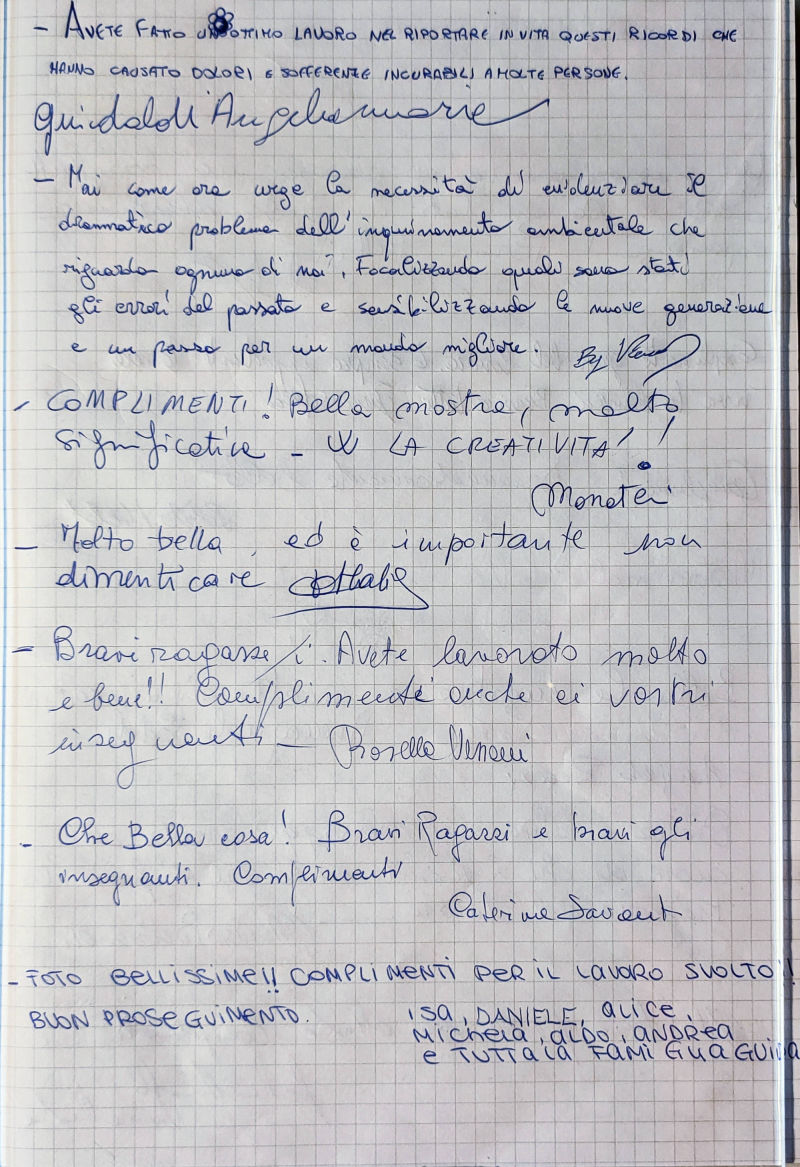 - AVETE FATTO UN OTTIMO LAVORO NEL RIPORTARE IN VITA QUESTI RICORDI CHE
HANNO CAUSATO DOLORI E SOFFERENZE INCURABILI A MOLTE PERSONE.
- Mai come ora urge la necessità di evidenziare il
drammatico problema dell'inquinamento ambientale che
riguarda ognuno di noi. Focalizzando quali sono stati
gli errori del passato e sensibilizzando le nuove generazione
e un passo per un mondo migliore. By
- COMPLIMENTI! Bella mostra, molto
significativa - W LA CREATIVITA'!
- Molto bella, ed è importante non
dimenticare
- Bravi ragazze/i. Avete lavorato molto
e bene!! Complimenti anche ai vostri
insegnanti - Rosella
- Che Bella cosa! Bravi Ragazzi e bravi gli
insegnanti. Complimenti
Caterina
- FOTO BELLISSIME!! COMPLIMENTI PER IL LAVORO SVOLTO!!
BUON PROSEGUIMENTO. ISA, DANIELE, ALICE,
MICHELA, ALDO, ANDREA
E TUTTA LA FAMIGLIA